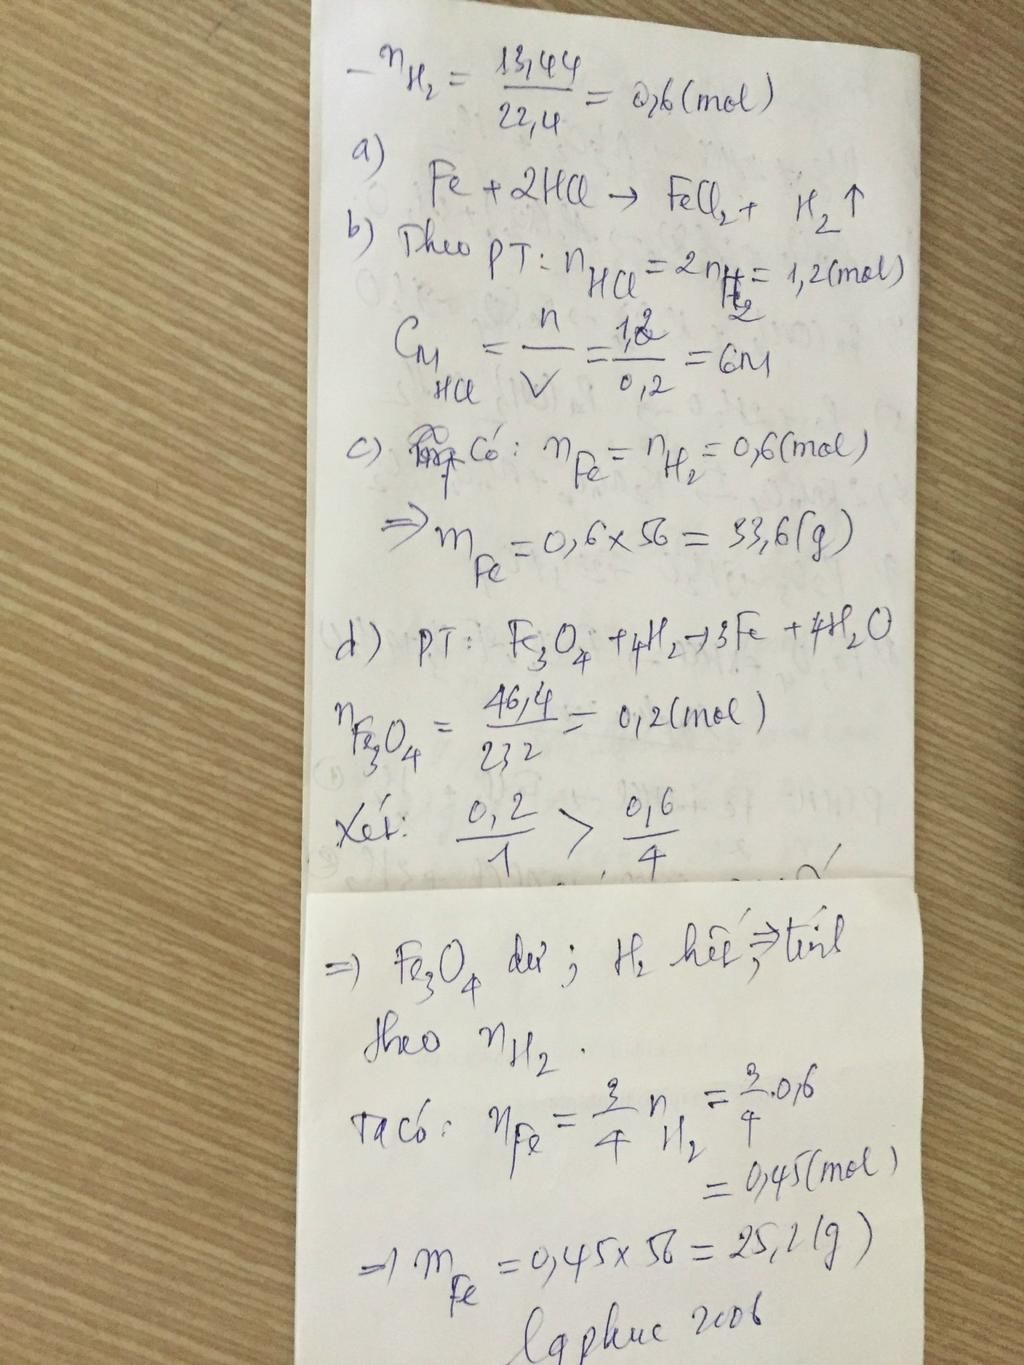 - nH₂ = 13,44/22,4 = 0,6 (mol)
a)
Fe + 2HCl → FeCl₂ + H₂ ↑
b) Theo PT: nHCl = 2nH₂ = 1,2 (mol)
CM HCl = n/V = 1,2/0,2 = 6M
c) Có: nFe = nH₂ = 0,6 (mol)
⇒ mFe = 0,6 x 56 = 33,6 (g)
d) PT: Fe₃O₄ + 4H₂ → 3Fe + 4H₂O
nFe₃O₄ = 46,4/232 = 0,2 (mol)
Xét: 0,2/1 > 0,6/4
⇒ Fe₃O₄ dư ; H₂ hết ; ⇒ tính
theo nH₂.
Ta có: nFe = 3/4 nH₂ = 3/4 . 0,6
= 0,45 (mol)
⇒ mFe = 0,45 x 56 = 25,2 (g)
2006